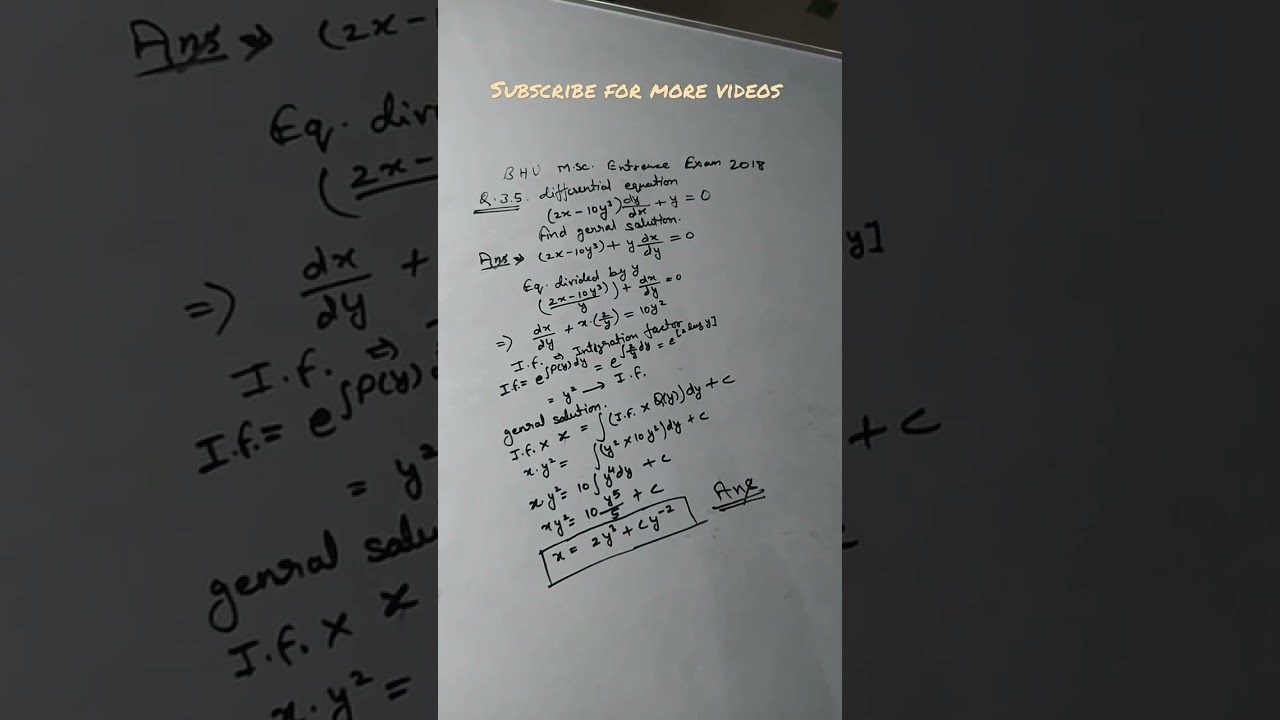 SUBSCRIBE FOR MORE VIDEOS
BHU M.Sc. Entrance Exam 2018
Q.35. differential equation
(2x-10y³)dy/dx + y = 0
find genral solution.
Ans → (2x-10y³) + y dx/dy = 0
Eq. divided by y
((2x-10y³)/y) + dx/dy = 0
⇒ dx/dy + x.(2/y) = 10y²
I.f. ⇒ Integration factor
I.f. = e^∫P(y)dy = e^∫2/y dy = e^[2 log y]
= y² → I.f.
genral solution.
I.f. × x = ∫(I.f. × Q(y))dy + c
x.y² = ∫(y² × 10y²)dy + c
x.y² = 10∫y⁴dy + c
xy² = 10 y⁵/5 + c
x = 2y³ + cy⁻² Ans
Ans → (2x-
Eq. div
(2x-
⇒ dx/dy +
y]
I.f. ⇒
I.f. = e^∫P(y)
= y²
+ c
genral solu
I.f. × x
x.y² =